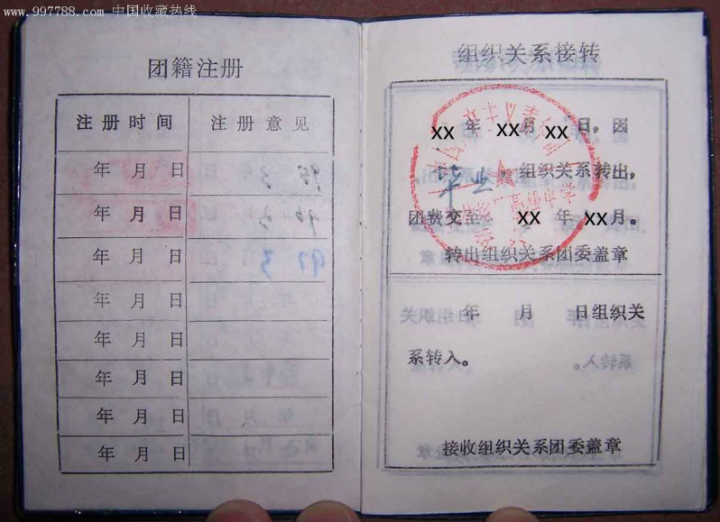 www.997788.com 中国收藏热线
团籍注册
注册时间 注册意见
年 月 日
年 月 日
年 月 日
年 月 日
年 月 日
年 月 日
年 月 日
年 月 日
组织关系接转
XX 年 XX月 XX 日，因
毕业 组织关系转出，
团费交至 XX 年 XX月。
转出组织关系团委盖章
年 月 日组织关
系转入。
接收组织关系团委盖章